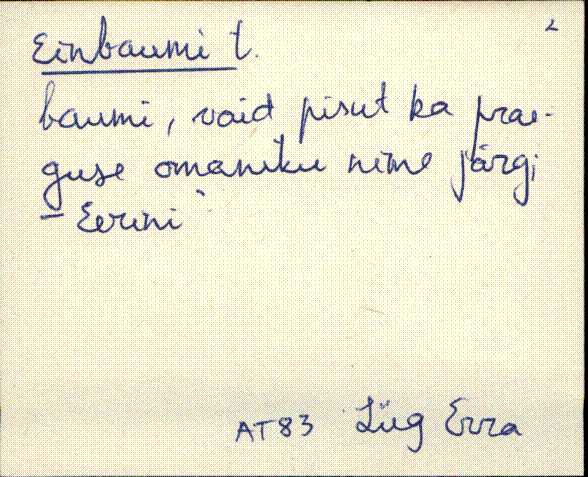 2
Einbaumi t.
baumi, vaid pisut ka prae-
guse omaniku nime järgi
– Eerini
AT83 Lüg Erra